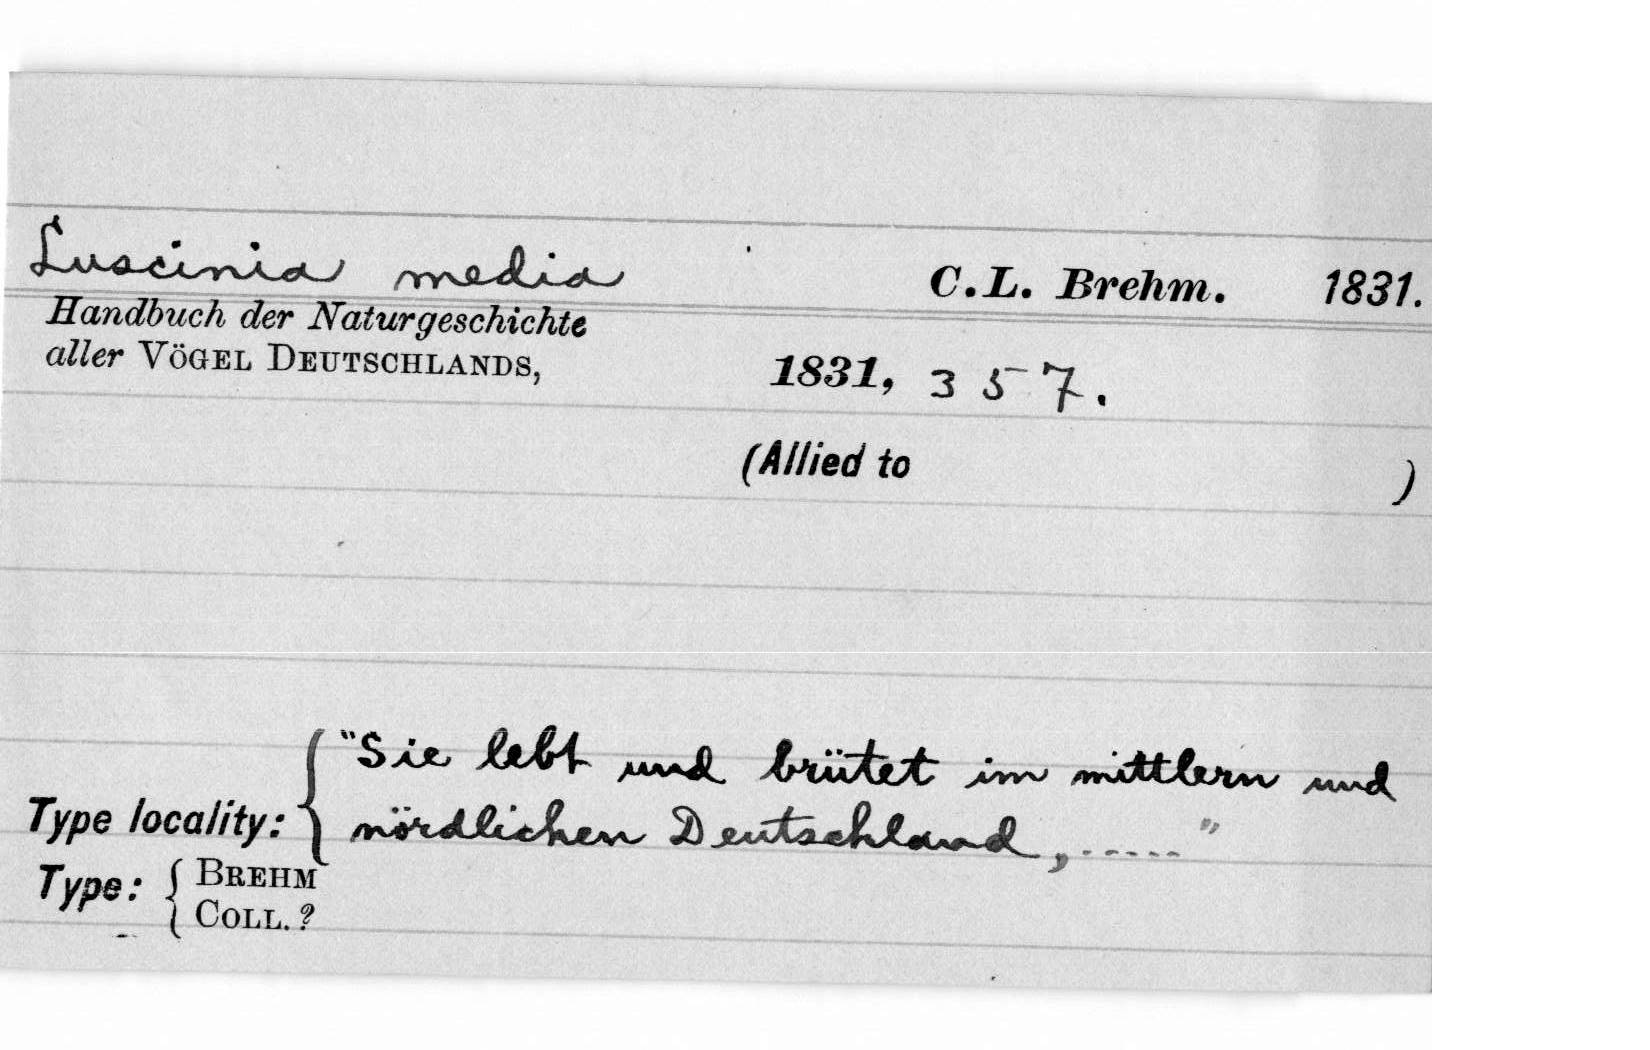 Luscinia media C.L. Brehm. 1831.
Handbuch der Naturgeschichte
aller VÖGEL DEUTSCHLANDS, 1831, 357.
(Allied to )
"Sie lebt und brütet im mittlern und
Type locality: nördlichen Deutschland, ....."
Type: BREHM
COLL. ?